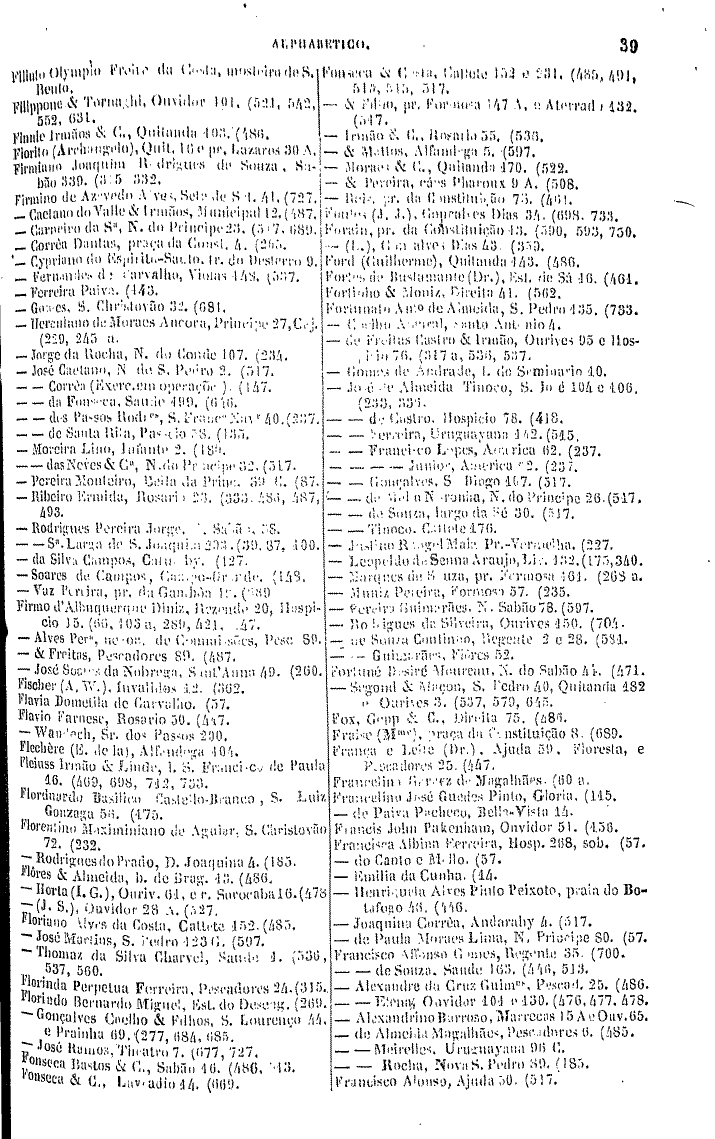 ALPHABETICO. 39
Filinto Olympio Freire da Costa, mosteiro de S.
Bento.
Filippone & Tornaghi, Ouvidor 101. (521, 542,
552, 631.
Finnie Irmãos & C., Quitanda 103. (486.
Fiorito (Archangelo), Quit. 16 e pr. Lazaros 30 A.
Firmiano Joaquim Rodrigues de Souza, Sa-
bão 339. 332.
Firmino de Azevedo Alves, Sete de Set. 41. (727.
— Caetano do Valle & Irmãos, Municipal 12. (487.
— Carneiro da Sª, N. do Principe 23. (517, 689.
— Corrêa Dantas, praça da Const. 4. (265.
— Cypriano do Espirito-Santo, tr. do Desterro 9.
— Fernandes de Carvalho, Violas 148. (537.
— Ferreira Paiva. (143.
— Goaes, S. Christovão 32. (681.
— Herculano de Moraes Ancora, Principe 27, Caj.
(229, 245 a.
— Jorge da Rocha, N. do Conde 107. (234.
— José Caetano, N. de S. Pedro 2. (517.
— — Corrêa (Exerc. em operações). (147.
— — da Fonseca, Saude 199. (646.
— — dos Passos Rodrºˢ, S. Francº Xavº 40. (237.
— — de Santa Rita, Passeio 38. (135.
— Moreira Lino, Infante 2. (186.
— — das Neves & Cª, N. do Principe 32. (517.
— Pereira Monteiro, Bella da Princ. 39 C. (87.
— Ribeiro Ermida, Rosario 23. (333, 486, 487,
493.
— Rodrigues Pereira Jorge, Sabão 38.
— — Sª, Larga de S. Joaquim 203. (39, 87, 100.
— da Silva Campos, (127.
— Soares de Campos, Campo-Grande. (148.
— Vaz Pereira, pr. da Gambôa
Firmo d'Albuquerque Diniz, Rezende 20, Hospi-
cio 15. (66, 103 a, 289, 421,
— Alves Perª, de Commissões, Pesc. 89.
— & Freitas, Pescadores 89. (487.
— José Soares da Nobrega, Sant'Anna 49. (260.
Fischer (A. W.), Invalidos 12. (362.
Flavia Dometila de Carvalho. (57.
Flavio Farnese, Rosario 50. (447.
— Sr. dos Passos 200.
Flechère (E. de la), Alfandega 104.
Fleiuss Irmão & Linde, l. S. Francisco de Paula
16. (469, 698, 712, 733.
Florduardo Basilico Castello-Branco, S. Luiz
Gonzaga 56. (475.
Florentino Maximiniano de Aguiar, S. Caristovão
72. (232.
— Rodrigues do Prado, D. Joaquina 4. (185.
Flôres & Almeida, b. de Brag. 43. (486.
— Horta (I. G.), Ouriv. 61, e r. Sorocaba 16. (473
— (J. S.), Ouvidor 28 A. (527.
Floriano Alves da Costa, Cattete 152. (485.
— José Martins, S. Pedro 123 G. (597.
— Thomaz da Silva Charvel, Saude 1. (536,
537, 560.
Florinda Perpetua Ferreira, Pescadores 24. (315.
Florindo Bernardo Miguel, Est. do Deseng. (269.
— Gonçalves Coelho & Filhos, S. Lourenço 44,
e Prainha 69. (277, 684, 685.
— José Ramos, Theatro 7. (677, 727.
Fonseca Bastos & C., Sabão 46. (486,
Fonseca & C., Lavradio 14. (669.
Fonseca & Costa, Cattete 152 e 231. (485, 491,
513, 515, 517.
— & Filho, pr. Formosa 147 A, e Aterrado 132.
(517.
— Irmão & C., Rosario 55. (536.
— & Mattos, Alfandega 5. (597.
— Moraes & C., Quitanda 170. (522.
— & Pereira, cáes Pharoux 9 A. (508.
— Reis, pr. da Constituição 73. (461.
Fontes (J. J.), Gonçalves Dias 34. (698, 733.
Forain, pr. da Constituição 13. (590, 593, 750.
— (L.), Gonçalves Dias 43. (359.
Ford (Guilherme), Quitanda 143. (486.
Fortes de Bustamante (Dr.), Est. de Sá 16. (461.
Fortinho & Moniz, Direita 41. (562.
Fortunato Antº de Almeida, S. Pedro 135. (733.
— Coelho Santo Antonio 4.
— de Freitas Castro & Irmão, Ourives 95 e Hos-
picio 76. (317 a, 536, 537.
— Gomes de Andrade, l. do Seminario 10.
— José de Almeida Tinoco, S. José 104 e 106.
(233, 334.
— — de Castro, Hospicio 78. (418.
— — Ferreira, Uruguayana 142. (545.
— — Francisco Lopes, America 62. (237.
— — — — Junior, America (237.
— — Gonçalves, S. Diogo 107. (517.
— — de Mello Noronha, N. do Principe 26. (517.
— — de Souza, largo da Sé 30. (517.
— — Tinoco, Cattete 176.
— Justino Rangel Maie, Pr.-Vermelha. (227.
— Leopoldo de Senna Araujo, Liv. 132. (175, 340.
— Marques de Souza, pr. Formosa 161. (268 a.
— Muniz Pereira, Formoso 57. (235.
— Pereira Guimarães, N. Sabão 78. (597.
— Rodrigues da Silveira, Ourives 150. (704.
— de Souza Continho, Regente 2 e 28. (581.
— — Guimarães, Flores 52.
Fortuné Desiré Moureau, N. do Sabão 44. (471.
— Segond & Maçon, S. Pedro 40, Quitanda 182
e Ourives 3. (537, 579, 645.
Fox, Gepp & C., Direita 75. (486.
Fraise (Mᵐᵉ), praça da Constituição 8. (689.
França e Leite (Dr.), Ajuda 59, Floresta, e
Pescadores 25. (447.
Francelina Gomez de Magalhães. (60 a.
Francelino José Guedes Pinto, Gloria. (145.
— de Paiva Pacheco, Bella-Vista 14.
Francis John Pakenham, Ouvidor 51. (456.
Francisca Albina Ferreira, Hosp. 268, sob. (57.
— do Canto e Mello. (57.
— Emilia da Cunha. (44.
— Henriqueta Alves Pinto Peixoto, praia do Bo-
tafogo 46. (446.
— Joaquina Corrêa, Andarahy 4. (517.
— de Paula Moraes Lima, N. Principe 80. (57.
Francisco Affonso Gomes, Regente 35. (700.
— — de Souza, Saude 163. (446, 513.
— Alexandre da Cruz Guimeˢ, Pescad. 25. (486.
— — Etenig, Ouvidor 101 e 130. (476, 477, 478.
— Alexandrino Barroso, Marrecas 15 A e Ouv. 65.
— de Almeida Magalhães, Pescadores 6. (485.
— — Meirelles, Uruguayana 96 C.
— — Rocha, Nova S. Pedro 89. (185.
Francisco Alonso, Ajuda 50. (517.